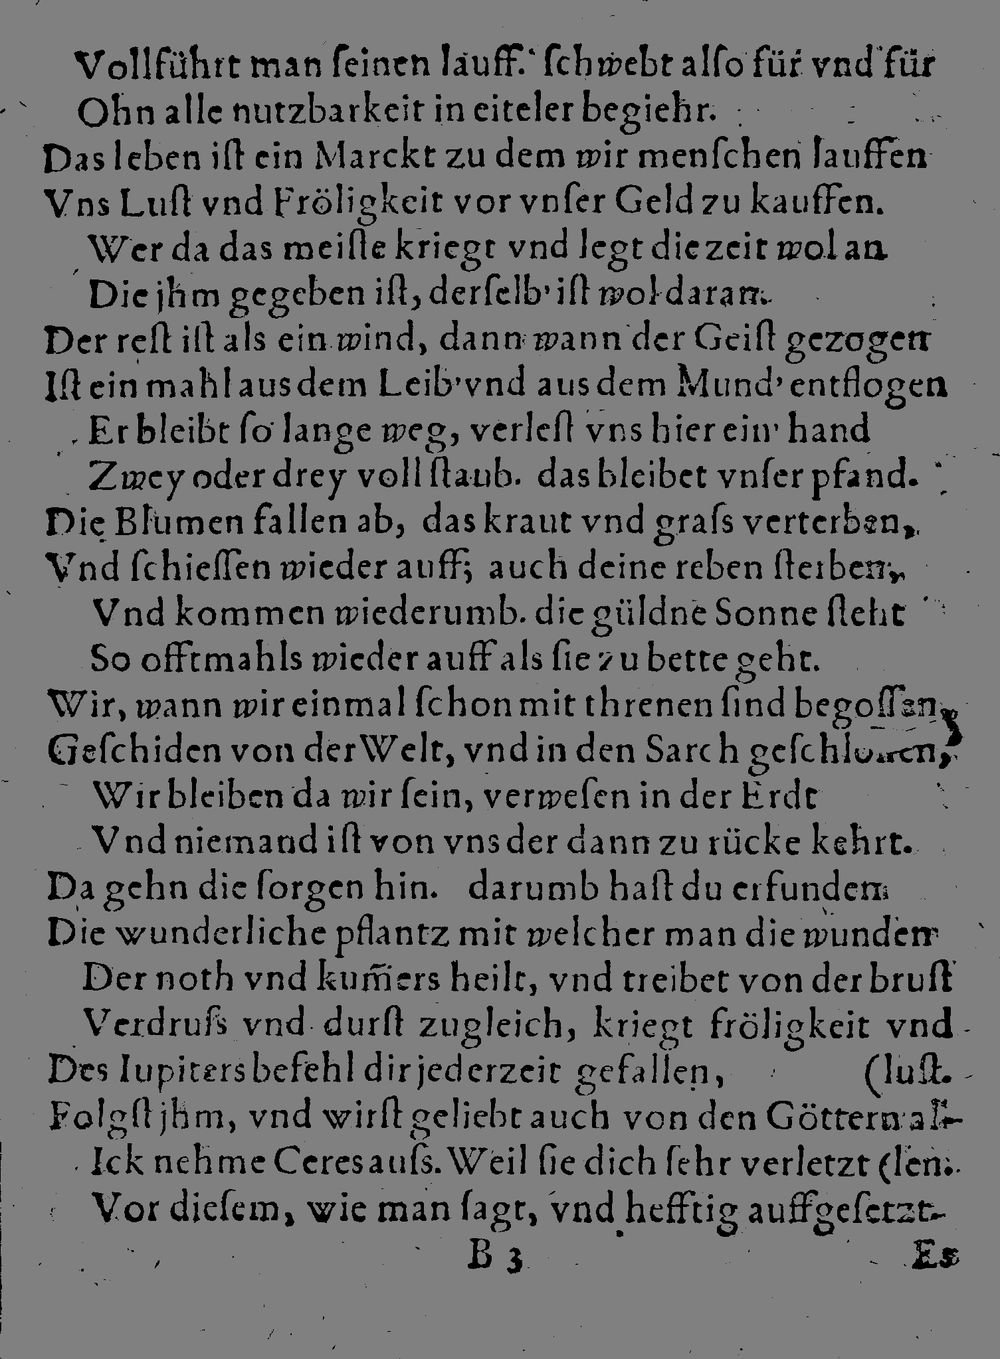 Vollführt man ſeinen lauff. ſchwebt alſo für vnd für
Ohn alle nutzbarkeit in eiteler begiehr.
Das leben iſt ein Marckt zu dem wir menſchen lauffen
Vns Luſt vnd Fröligkeit vor vnſer Geld zu kauffen.
Wer da das meiſte kriegt vnd legt die zeit wol an
Die jhm gegeben iſt, derſelb' iſt wol daran.
Der reſt iſt als ein wind, dann wann der Geiſt gezogen
Iſt ein mahl aus dem Leib' vnd aus dem Mund' entflogen
Er bleibt ſo lange weg, verleſt vns hier ein' hand
Zwey oder drey voll ſtaub. das bleibet vnſer pfand.
Die Blumen fallen ab, das kraut vnd graſs verterben,
Vnd ſchieſſen wieder auff; auch deine reben ſterben,
Vnd kommen wiederumb. die güldne Sonne ſteht
So offtmahls wieder auff als ſie zu bette geht.
Wir, wann wir einmal ſchon mit threnen ſind begoſſen,
Geſchiden von der Welt, vnd in den Sarch geſchloſſen,
Wir bleiben da wir ſein, verweſen in der Erdt
Vnd niemand iſt von vns der dann zu rücke kehrt.
Da gehn die ſorgen hin. darumb haſt du erfunden
Die wunderliche pflantz mit welcher man die wunden
Der noth vnd kum̃ers heilt, vnd treibet von der bruſt
Verdruſs vnd durſt zugleich, kriegt fröligkeit vnd
Des Iupiters befehl dir jederzeit gefallen, (luſt.
Folgſt jhm, vnd wirſt geliebt auch von den Göttern al-
Ick nehme Ceres auſs. Weil ſie dich ſehr verletzt (len.
Vor dieſem, wie man ſagt, vnd hefftig auffgeſetzt.
B 3 Es